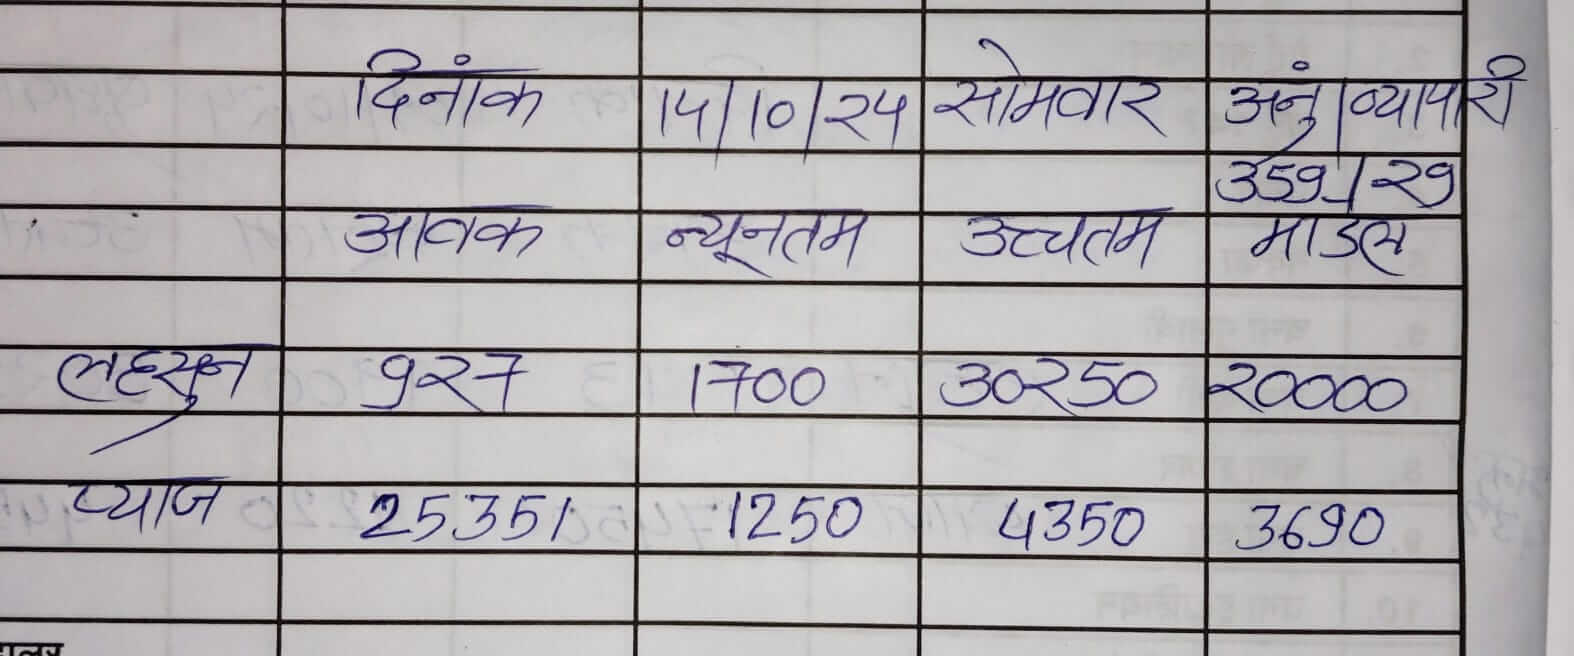 दिनांक 14/10/24 सोमवार अनुं/व्यापारी
359/29
आवक न्यूनतम उच्चतम माडल
लहसुन 927 1700 30250 20000
प्याज 25351 1250 4350 3690